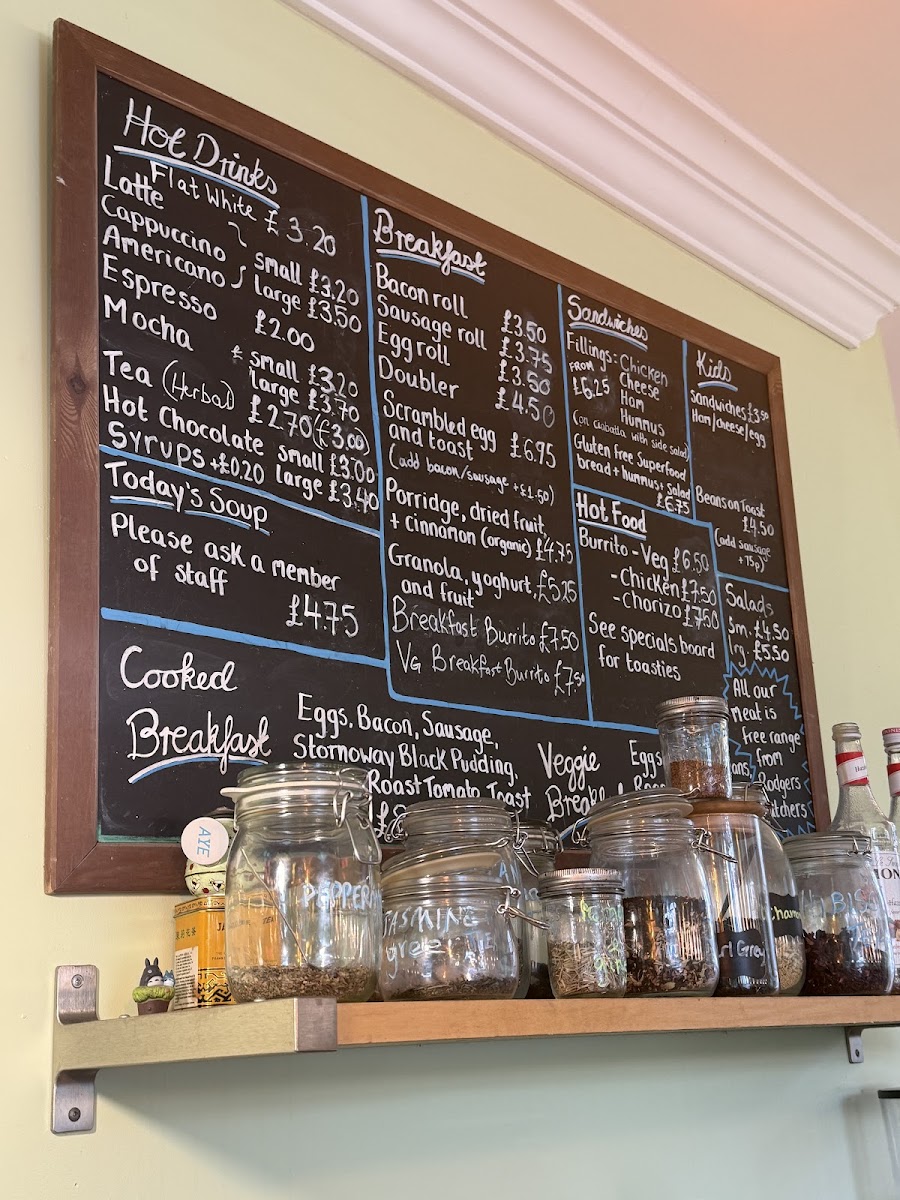 Hot Drinks
Flat White £3.20
Latte
Cappuccino
Americano
small £3.20
large £3.50
Espresso £2.00
Mocha
small £3.20
large £3.70
Tea (Herbal) £2.70 (£3.00)
Hot Chocolate small £3.00
large £3.40
Syrups +£0.20
Today's Soup
Please ask a member
of staff
£4.75
Breakfast
Bacon roll £3.50
Sausage roll £3.75
Egg roll £3.50
Doubler £4.50
Scrambled egg
and toast £6.95
(add bacon/sausage +£1.50)
Porridge, dried fruit
+ cinnamon (organic) £4.75
Granola, yoghurt,
and fruit £5.25
Breakfast Burrito £7.50
VG Breakfast Burrito £7.50
Sandwiches
Fillings:- Chicken
FROM £6.25 Cheese
Ham
Hummus
(on ciabatta with side salad)
Gluten free Superfood
bread + hummus + Salad
£6.75
Hot Food
Burrito - Veg £6.50
- Chicken £7.50
- Chorizo £7.50
See specials board
for toasties
Kids
Sandwiches £3.50
Ham/cheese/egg
Beans on Toast
£4.50
(add sausage
+75p)
Salads
Sm. £4.50
lrg. £5.50
All our
meat is
free range
from
Rodgers
Cooked
Breakfast
Eggs, Bacon, Sausage,
Stornoway Black Pudding,
Roast Tomato, Toast
Veggie
Eggs
AYE
JASMINE
green